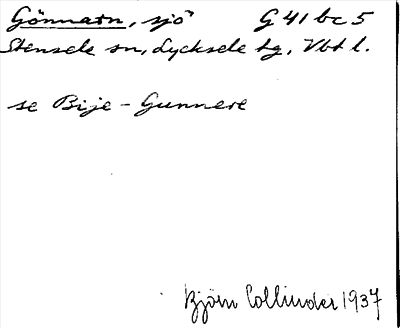 Gönnatn, sjö G 41 bc 5
Stensele sn, Lycksele lg, Vbt l.
se Bije - Gunnere
Björn Collinder 1937